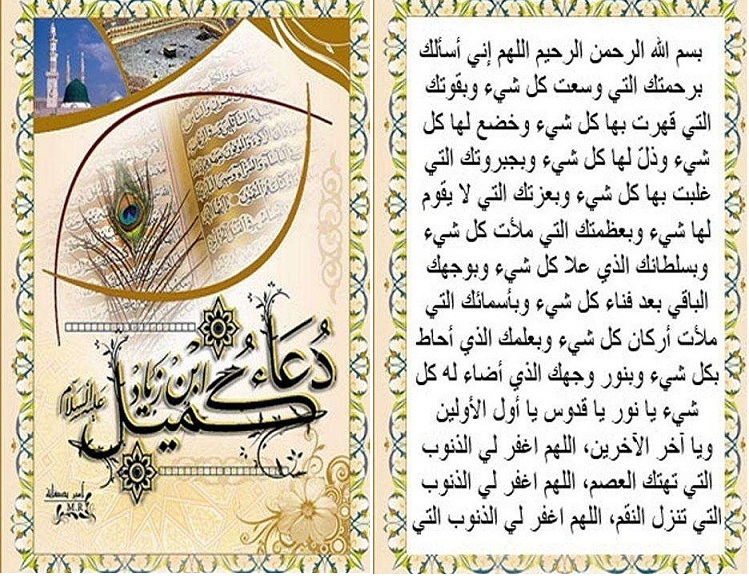 دُعَاء كُميل
ابْن زيَاد
عليه السلام
M.R
بسم الله الرحمن الرحيم اللهم إني أسألك
برحمتك التي وسعت كل شيء وبقوتك
التي قهرت بها كل شيء وخضع لها كل
شيء وذلّ لها كل شيء وبجبروتك التي
غلبت بها كل شيء وبعزتك التي لا يقوم
لها شيء وبعظمتك التي ملأت كل شيء
وبسلطانك الذي علا كل شيء وبوجهك
الباقي بعد فناء كل شيء وبأسمائك التي
ملأت أركان كل شيء وبعلمك الذي أحاط
بكل شيء وبنور وجهك الذي أضاء له كل
شيء يا نور يا قدوس يا أول الأولين
ويا آخر الآخرين، اللهم اغفر لي الذنوب
التي تهتك العصم، اللهم اغفر لي الذنوب
التي تنزل النقم، اللهم اغفر لي الذنوب التي